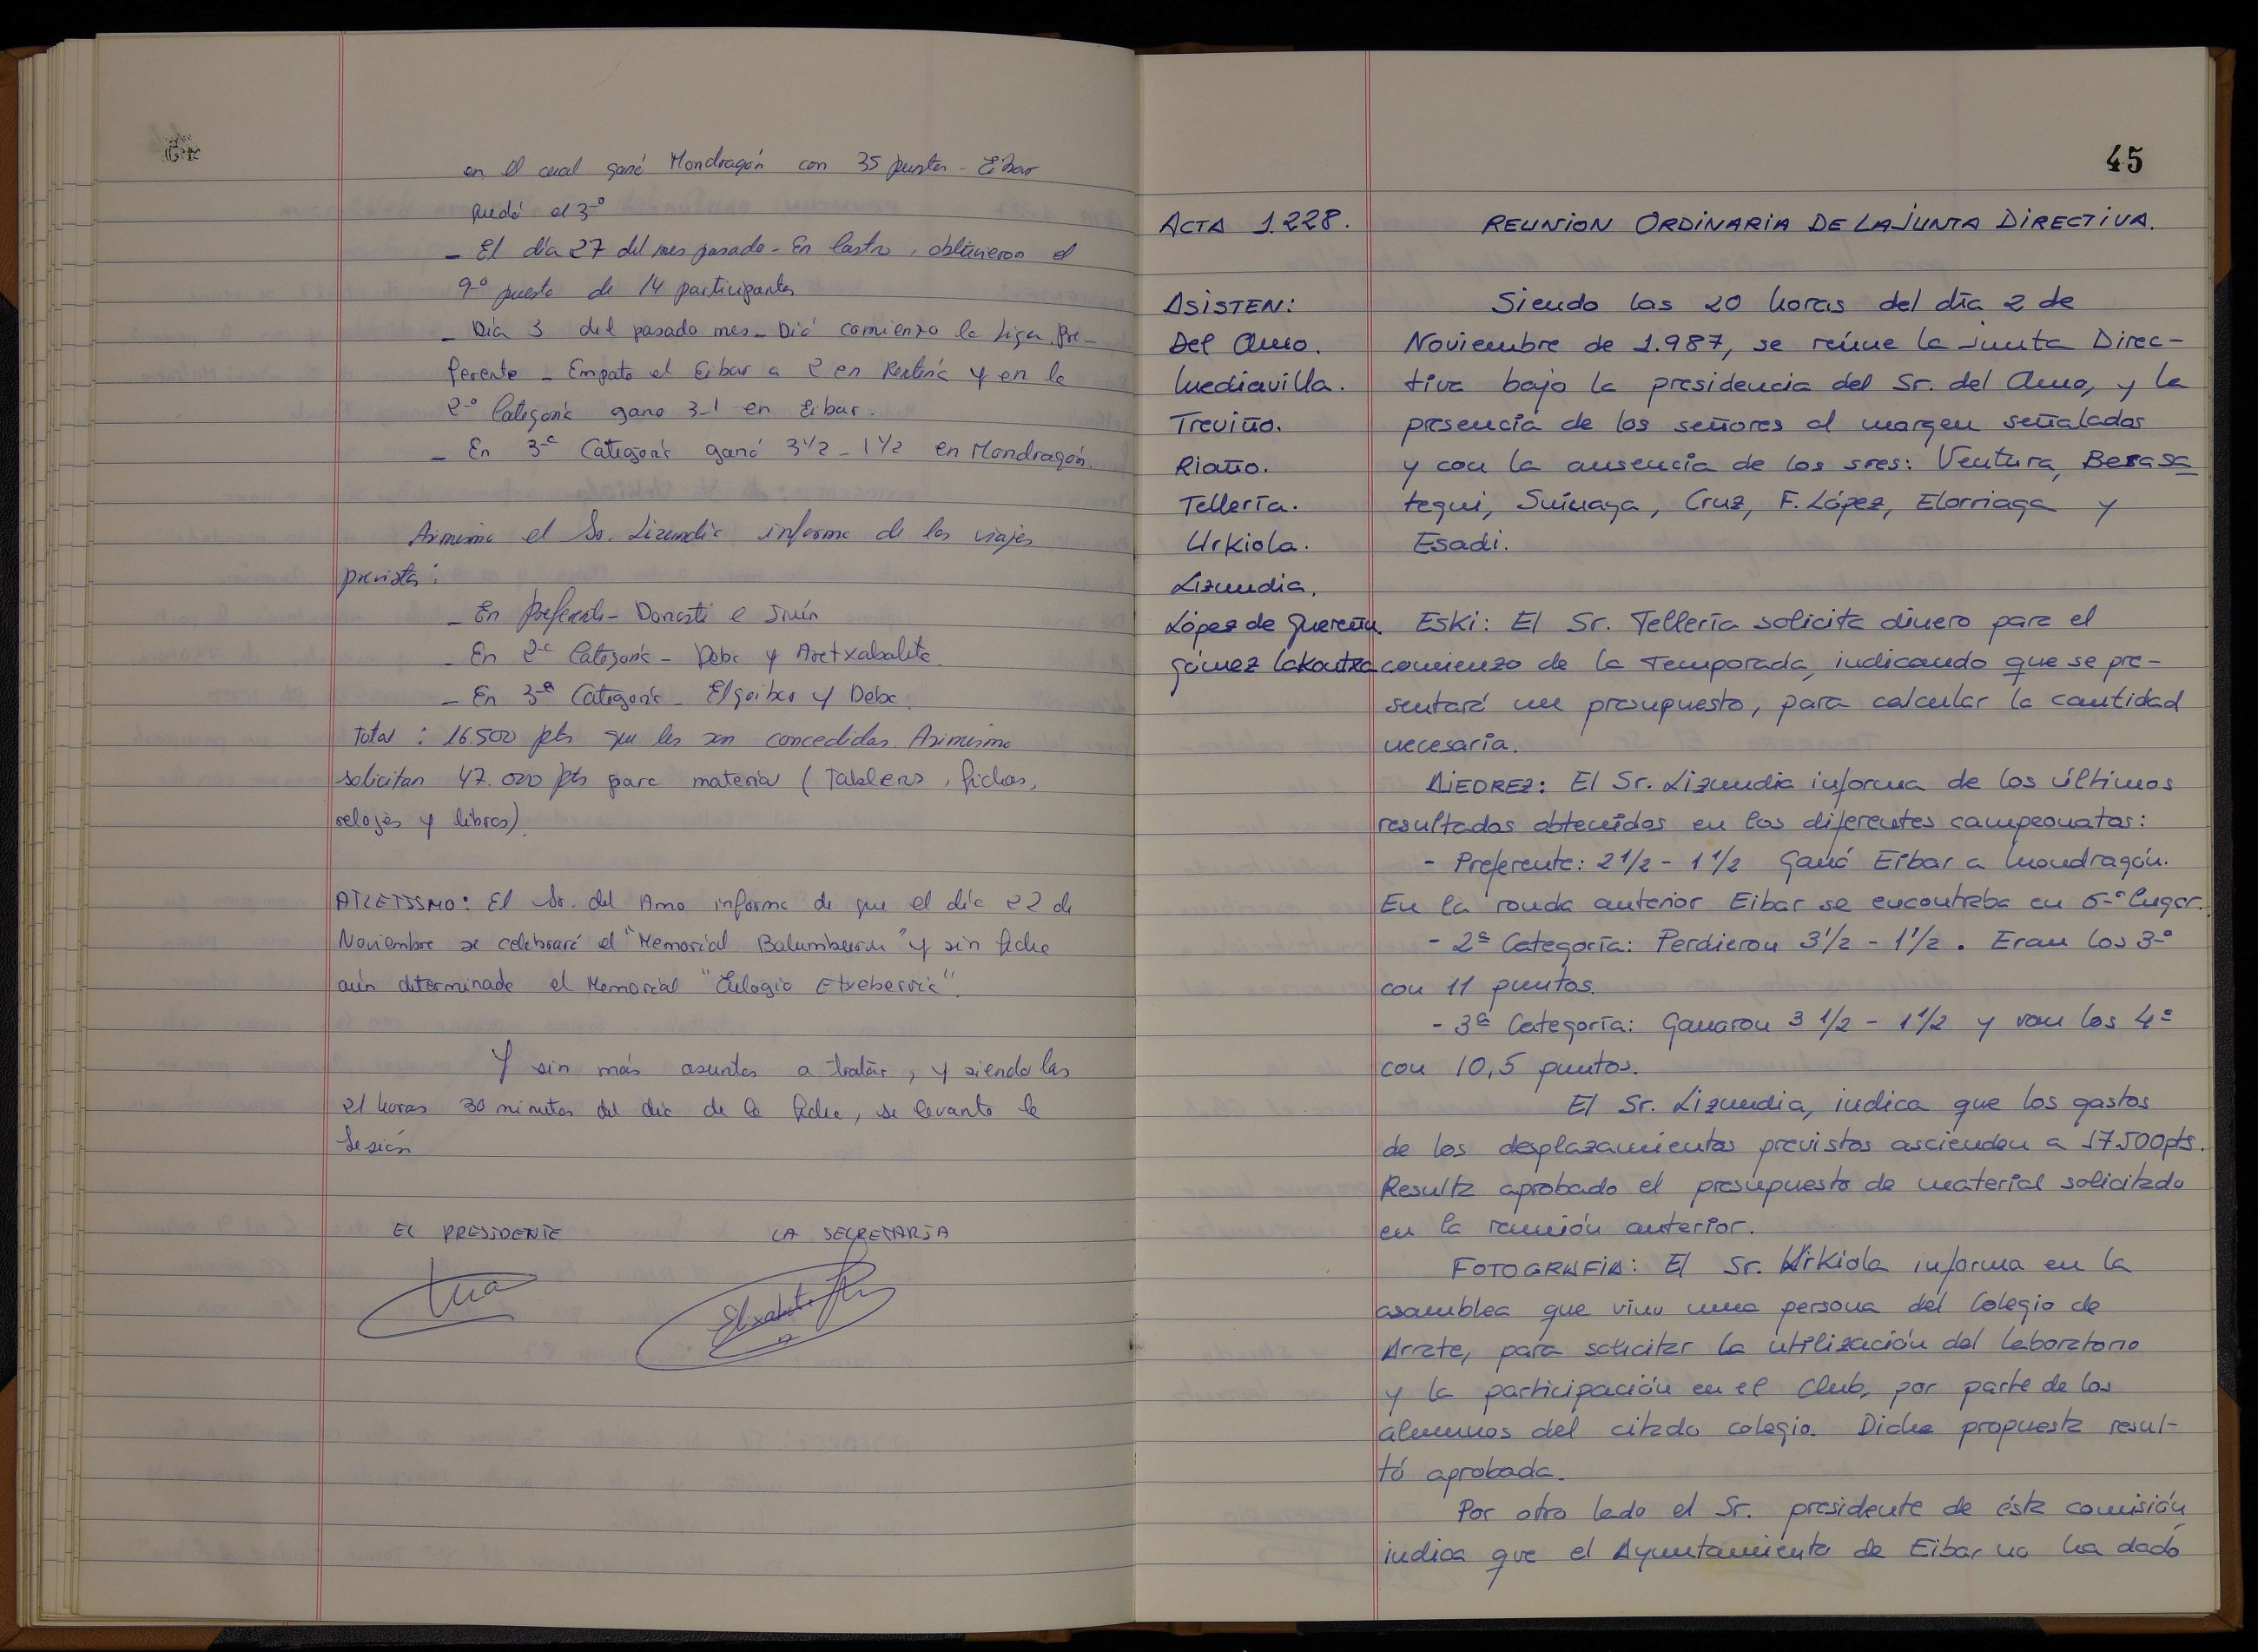 en el cual ganó Mondragón con 35 puntos - Eibar
quedó el 3-º
- El día 27 del mes pasado - En Castro, obtuvieron el
9-º puesto de 14 participantes
- Día 3 del pasado mes - Dió comienzo la Liga Pre-
ferente - Empato el Eibar a 2 en Rentería y en la
2-ª Categoría gano 3-1 en Eibar.
- En 3-ª Categoría ganó 3 1/2 - 1 1/2 en Mondragón.
Asimismo el Sr. Lizundia informa de los viajes
previstos:
- En preferente - Donosti e Irún
- En 2-ª Categoría - Deba y Aretxabaleta
- En 3-ª Categoría - Elgoibar y Deba.
Total: 16.500 pts que les son concedidas. Asimismo
solicitan 47.000 pts para material (Tableros, fichas,
relojes y libros).
ATLETISMO: El Sr. del Amo informa de que el día 22 de
Noviembre se celebrará el "Memorial Balumburu" y sin fecha
aún determinada el Memorial "Eulogio Etxeberria".
Y sin más asuntos a tratar, y siendo las
21 horas 30 minutos del día de la fecha, se levanto la
Sesión
EL PRESIDENTE LA SECRETARIA
45
ACTA 1.228. REUNION ORDINARIA DE LA JUNTA DIRECTIVA.
ASISTEN:
Del Amo.
Mediavilla.
Treviño.
Riaño.
Tellería.
Urkiola.
Lizundia.
López de Guereñu.
Gómez Lakontxa
Siendo las 20 horas del día 2 de
Noviembre de 1.987, se reúne la junta Direc-
tiva bajo la presidencia del Sr. del Amo, y la
presencia de los señores al margen señalados
y con la ausencia de los sres: Ventura, Berasa
tegui, Suinaga, Cruz, F. López, Elorriaga y
Esadi.
Eski: El Sr. Tellería solicita dinero para el
comienzo de la Temporada, indicando que se pre-
sentará un presupuesto, para calcular la cantidad
necesaria.
AJEDREZ: El Sr. Lizundia informa de los últimos
resultados obtenidos en los diferentes campeonatos:
- Preferente: 2 1/2 - 1 1/2 Ganó Eibar a Mondragón.
En la ronda anterior Eibar se encontraba en 6-º lugar.
- 2ª Categoría: Perdieron 3 1/2 - 1 1/2. Eran los 3-º
con 11 puntos.
- 3ª Categoría: Ganaron 3 1/2 - 1 1/2 y van los 4º
con 10,5 puntos.
El Sr. Lizundia, indica que los gastos
de los desplazamientos previstos ascienden a 17.500 pts.
Resulta aprobado el presupuesto de material solicitado
en la reunión anterior.
FOTOGRAFIA: El Sr. Urkiola informa en la
asamblea que vino una persona del Colegio de
Arrate, para solicitar la utilización del laboratorio
y la participación en el Club, por parte de los
alumnos del citado colegio. Dicha propuesta resul-
tó aprobada.
Por otro lado el Sr. presidente de ésta comisión
indica que el Ayuntamiento de Eibar no ha dado